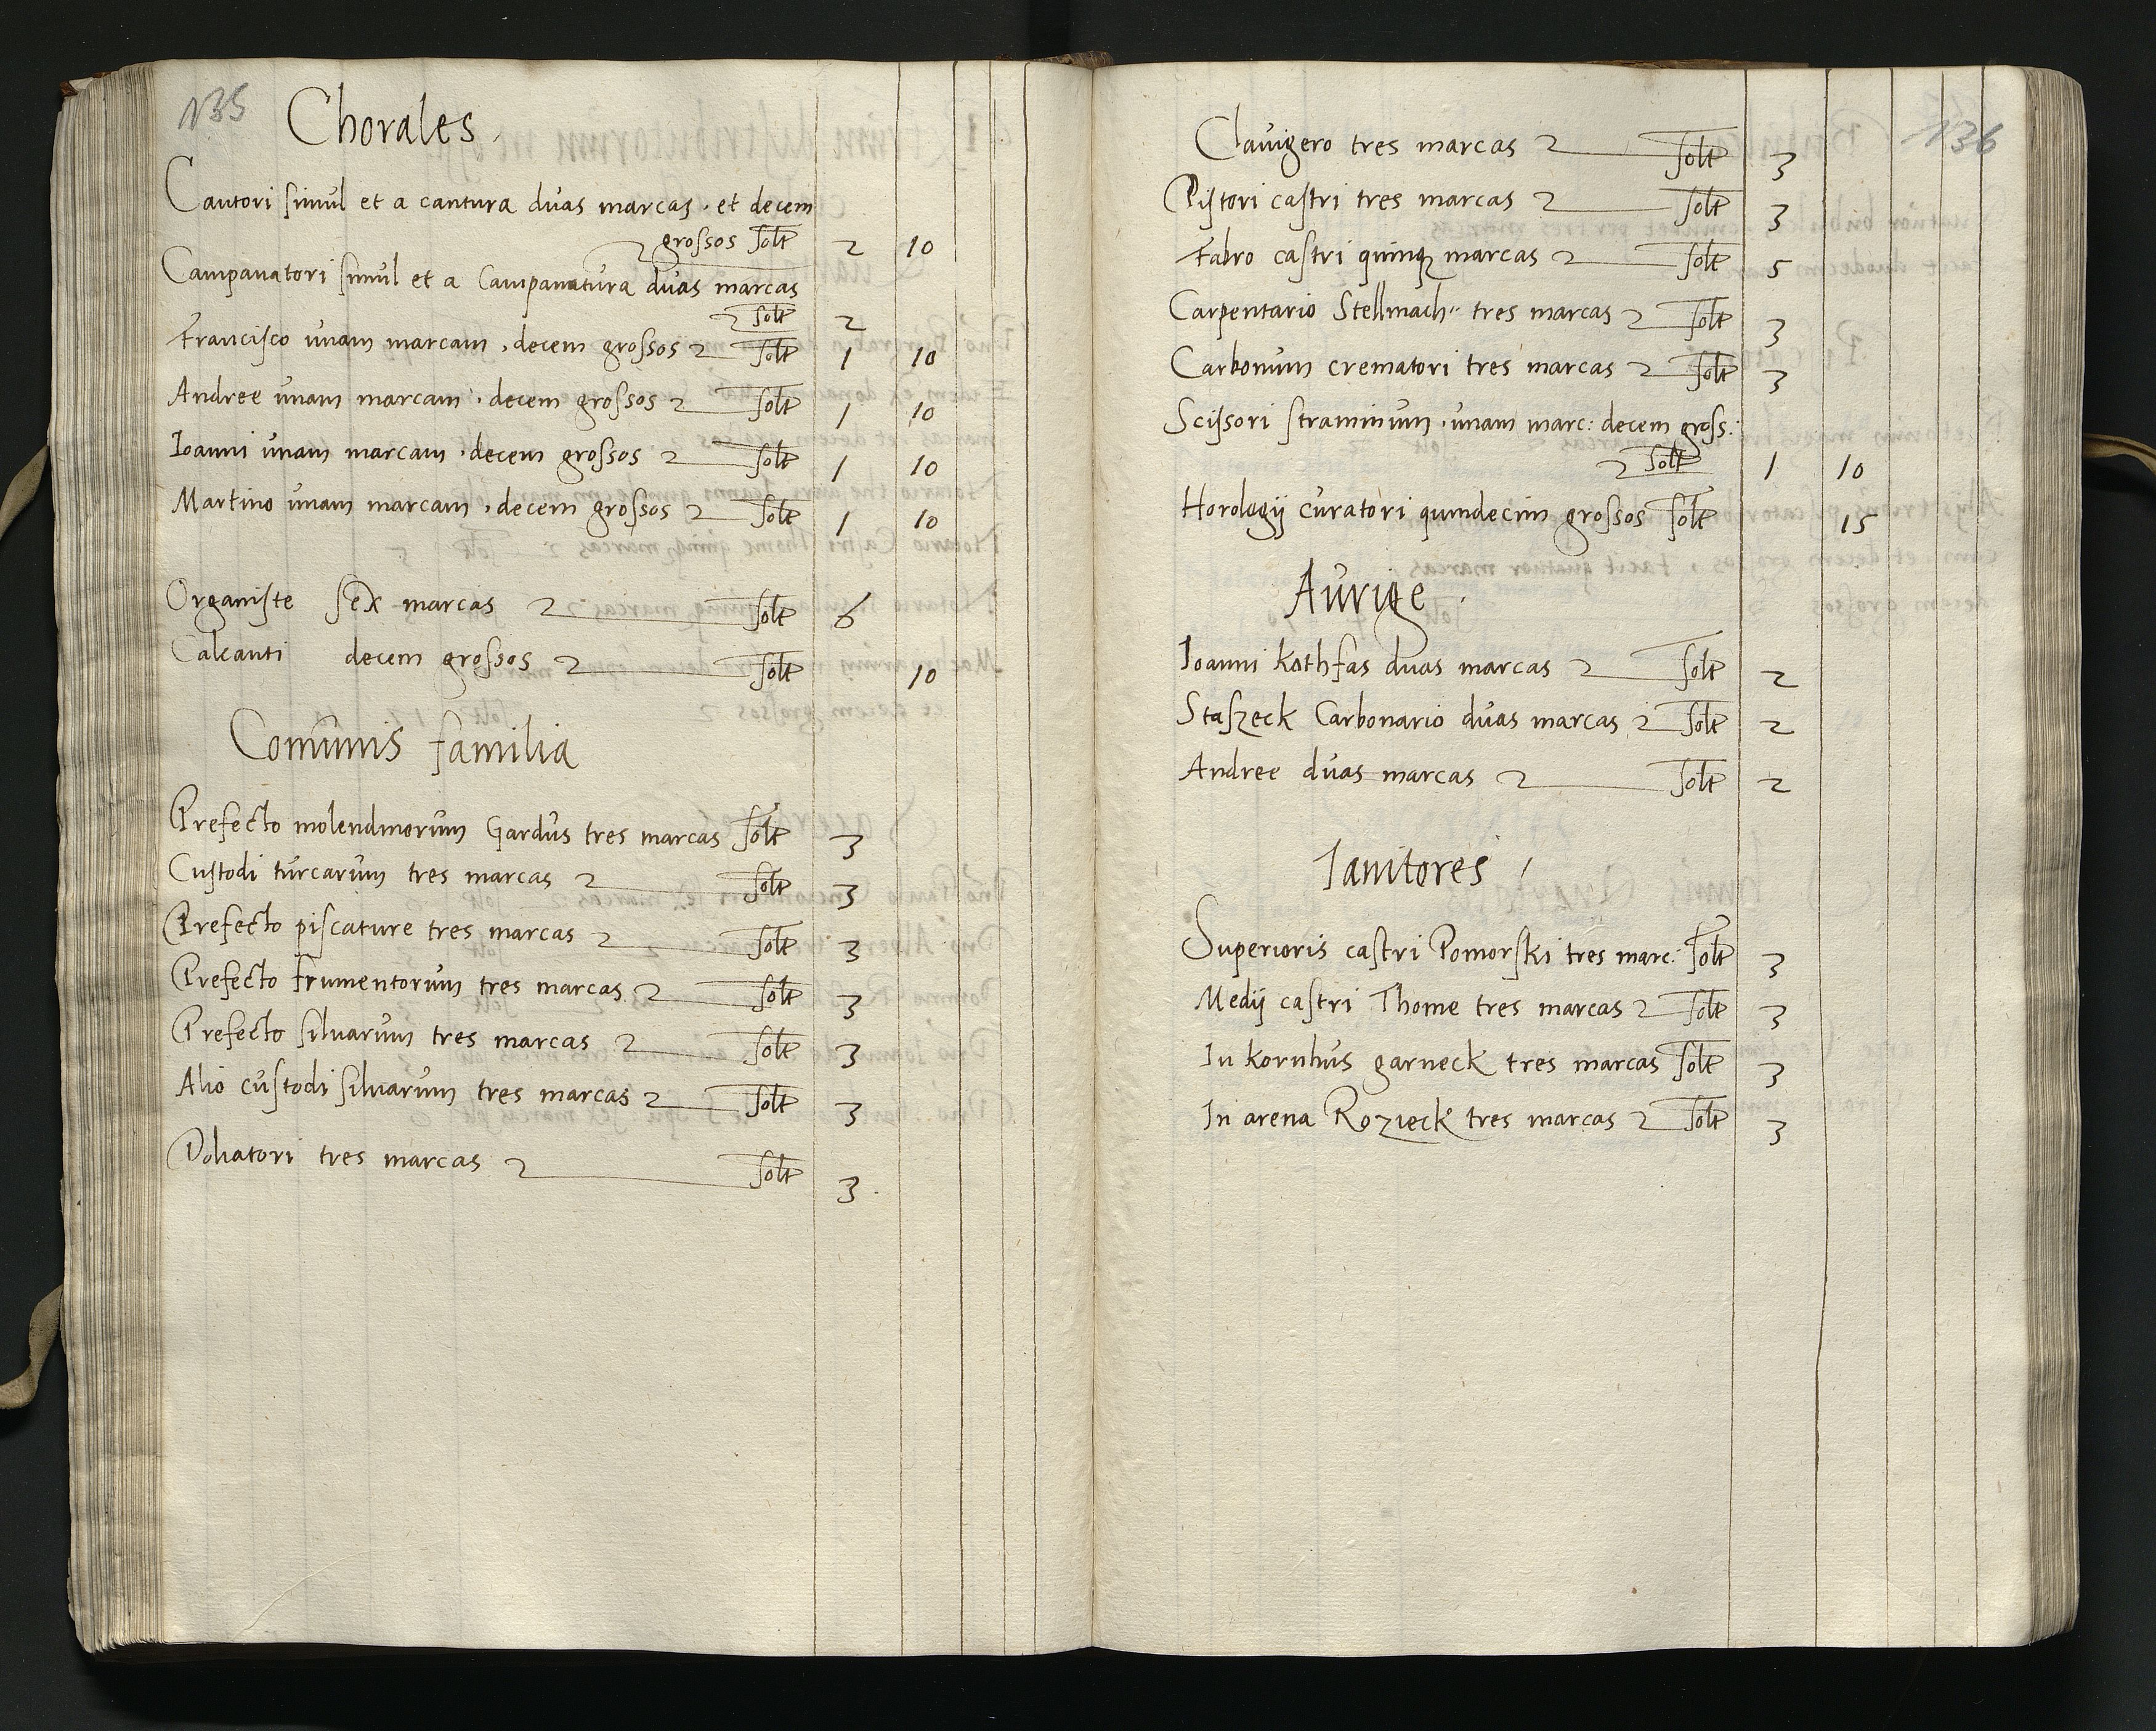 135
Chorales
Cantori simul et a cantura duas marcas . et decem
grossos solt 2 10
Campanatori simul et a Campanatura duas marcas
solt 2
Francisco unam marcam . decem grossos solt 1 10
Andree unam marcam . decem grossos solt 1 10
Ioanni unam marcam . decem grossos solt 1 10
Martino unam marcam . decem grossos solt 1 10
Organiste sex marcas solt 6
Calcanti decem grossos solt 10
Com̄unis familia
Prefecto molendinorum Gardus tres marcas solt 3
Custodi turcarum tres marcas solt 3
Prefecto piscature tres marcas solt 3
Prefecto frumentorum tres marcas solt 3
Prefecto silvarum tres marcas solt 3
Alio custodi silvarum tres marcas solt 3
Doliatori tres marcas solt 3.
136
Clavigero tres marcas solt 3
Pistori castri tres marcas solt 3
Fabro castri quinq; marcas solt 5
Carpentario Stellmach tres marcas solt 3
Carbonum crematori tres marcas solt 3
Scissori straminum . unam marc: decem gross:
solt 1 10
Horologij curatori quindecim grossos solt 15
Aurige .
Ioanni Kothfas duas marcas solt 2
Staszeck Carbonario duas marcas solt 2
Andree duas marcas solt 2
Ianitores
Superioris castri Pomorski tres marc: solt 3
Medij castri Thome tres marcas solt 3
In kornhus garneck tres marcas solt 3
In arena Rozieck tres marcas solt 3